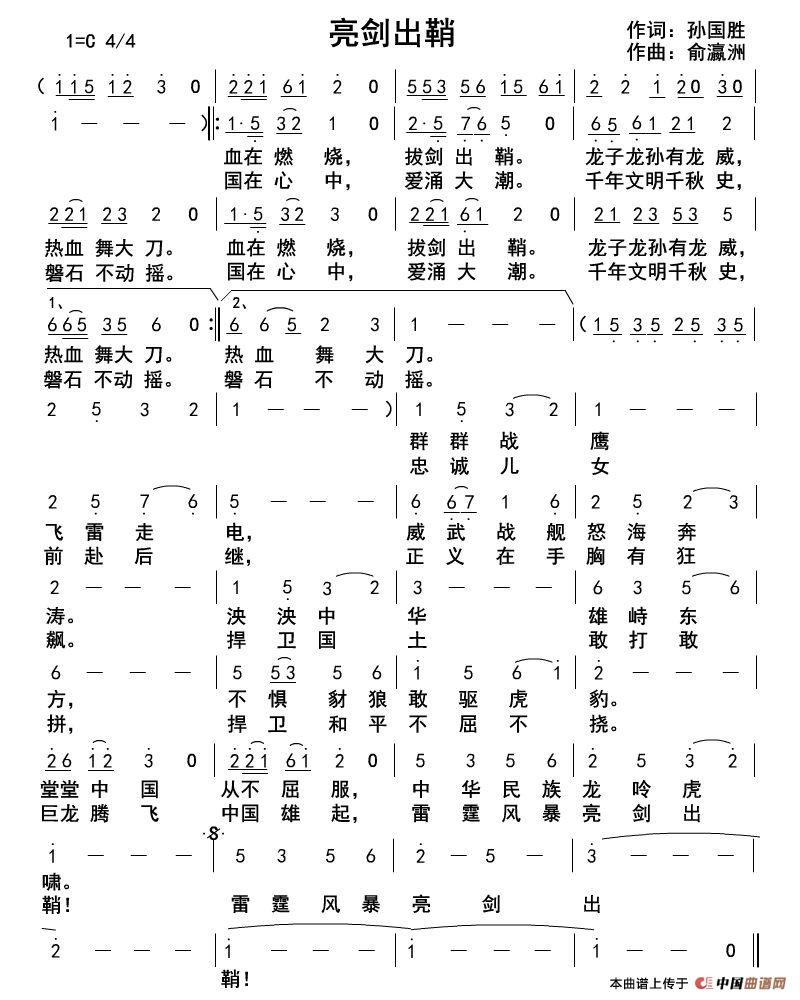 亮剑出鞘
1=C 4/4
作词：孙国胜
作曲：俞瀛洲
( 1 1 5 1 2 3 0 | 2 2 1 6 1 2 0 | 5 5 3 5 6 1 5 6 1 | 2 2 1 2 0 3 0 |
1 — — ) ‖: 1· 5 3 2 1 0 | 2· 5 7 6 5 0 | 6 5 6 1 2 1 2 |
血在 燃 烧， 拔剑 出 鞘。 龙子龙孙有龙 威，
国在 心 中， 爱涌 大 潮。 千年文明千秋 史，
2 2 1 2 3 2 0 | 1· 5 3 2 3 0 | 2 2 1 6 1 2 0 | 2 1 2 3 5 3 5 |
热血 舞大 刀。 血在 燃 烧， 拔剑 出 鞘。 龙子龙孙有龙 威，
磐石 不动 摇。 国在 心 中， 爱涌 大 潮。 千年文明千秋 史，
1、 2、
6 6 5 3 5 6 0 :‖ 6 6 5 2 3 | 1 — — — | ( 1 5 3 5 2 5 3 5 |
热血 舞大 刀。 热 血 舞 大 刀。
磐石 不动 摇。 磐 石 不 动 摇。
2 5 3 2 | 1 — — ) | 1 5 3 2 | 1 — — |
群 群 战 鹰
忠 诚 儿 女
2 5 7 6 | 5 — — | 6 6 7 1 6 | 2 5 2 3 |
飞 雷 走 电， 威 武 战 舰 怒 海 奔
前 赴 后 继， 正 义 在 手 胸 有 狂
2 — — | 1 5 3 2 | 3 — — | 6 3 5 6 |
涛。 泱 泱 中 华 雄 峙 东
飙。 捍 卫 国 土 敢 打 敢
6 — — | 5 5 3 5 6 | 1 5 6 1 | 2 — — |
方， 不 惧 豺 狼 敢 驱 虎 豹。
拼， 捍 卫 和 平 不 屈 不 挠。
2 6 1 2 3 0 | 2 2 1 6 1 2 0 | 5 3 5 6 | 2 5 3 2 |
堂堂 中 国 从不 屈 服， 中 华 民 族 龙 吟 虎
巨龙 腾 飞 中国 雄 起， 雷 霆 风 暴 亮 剑 出
1 — — — | 5 3 5 6 | 2 — 5 — | 3 — — — |
啸。
鞘！ 雷 霆 风 暴 亮 剑 出
2 — — — | 1 — — — | 1 — — — | 1 — — 0 ‖
鞘！
本曲谱上传于 中国曲谱网